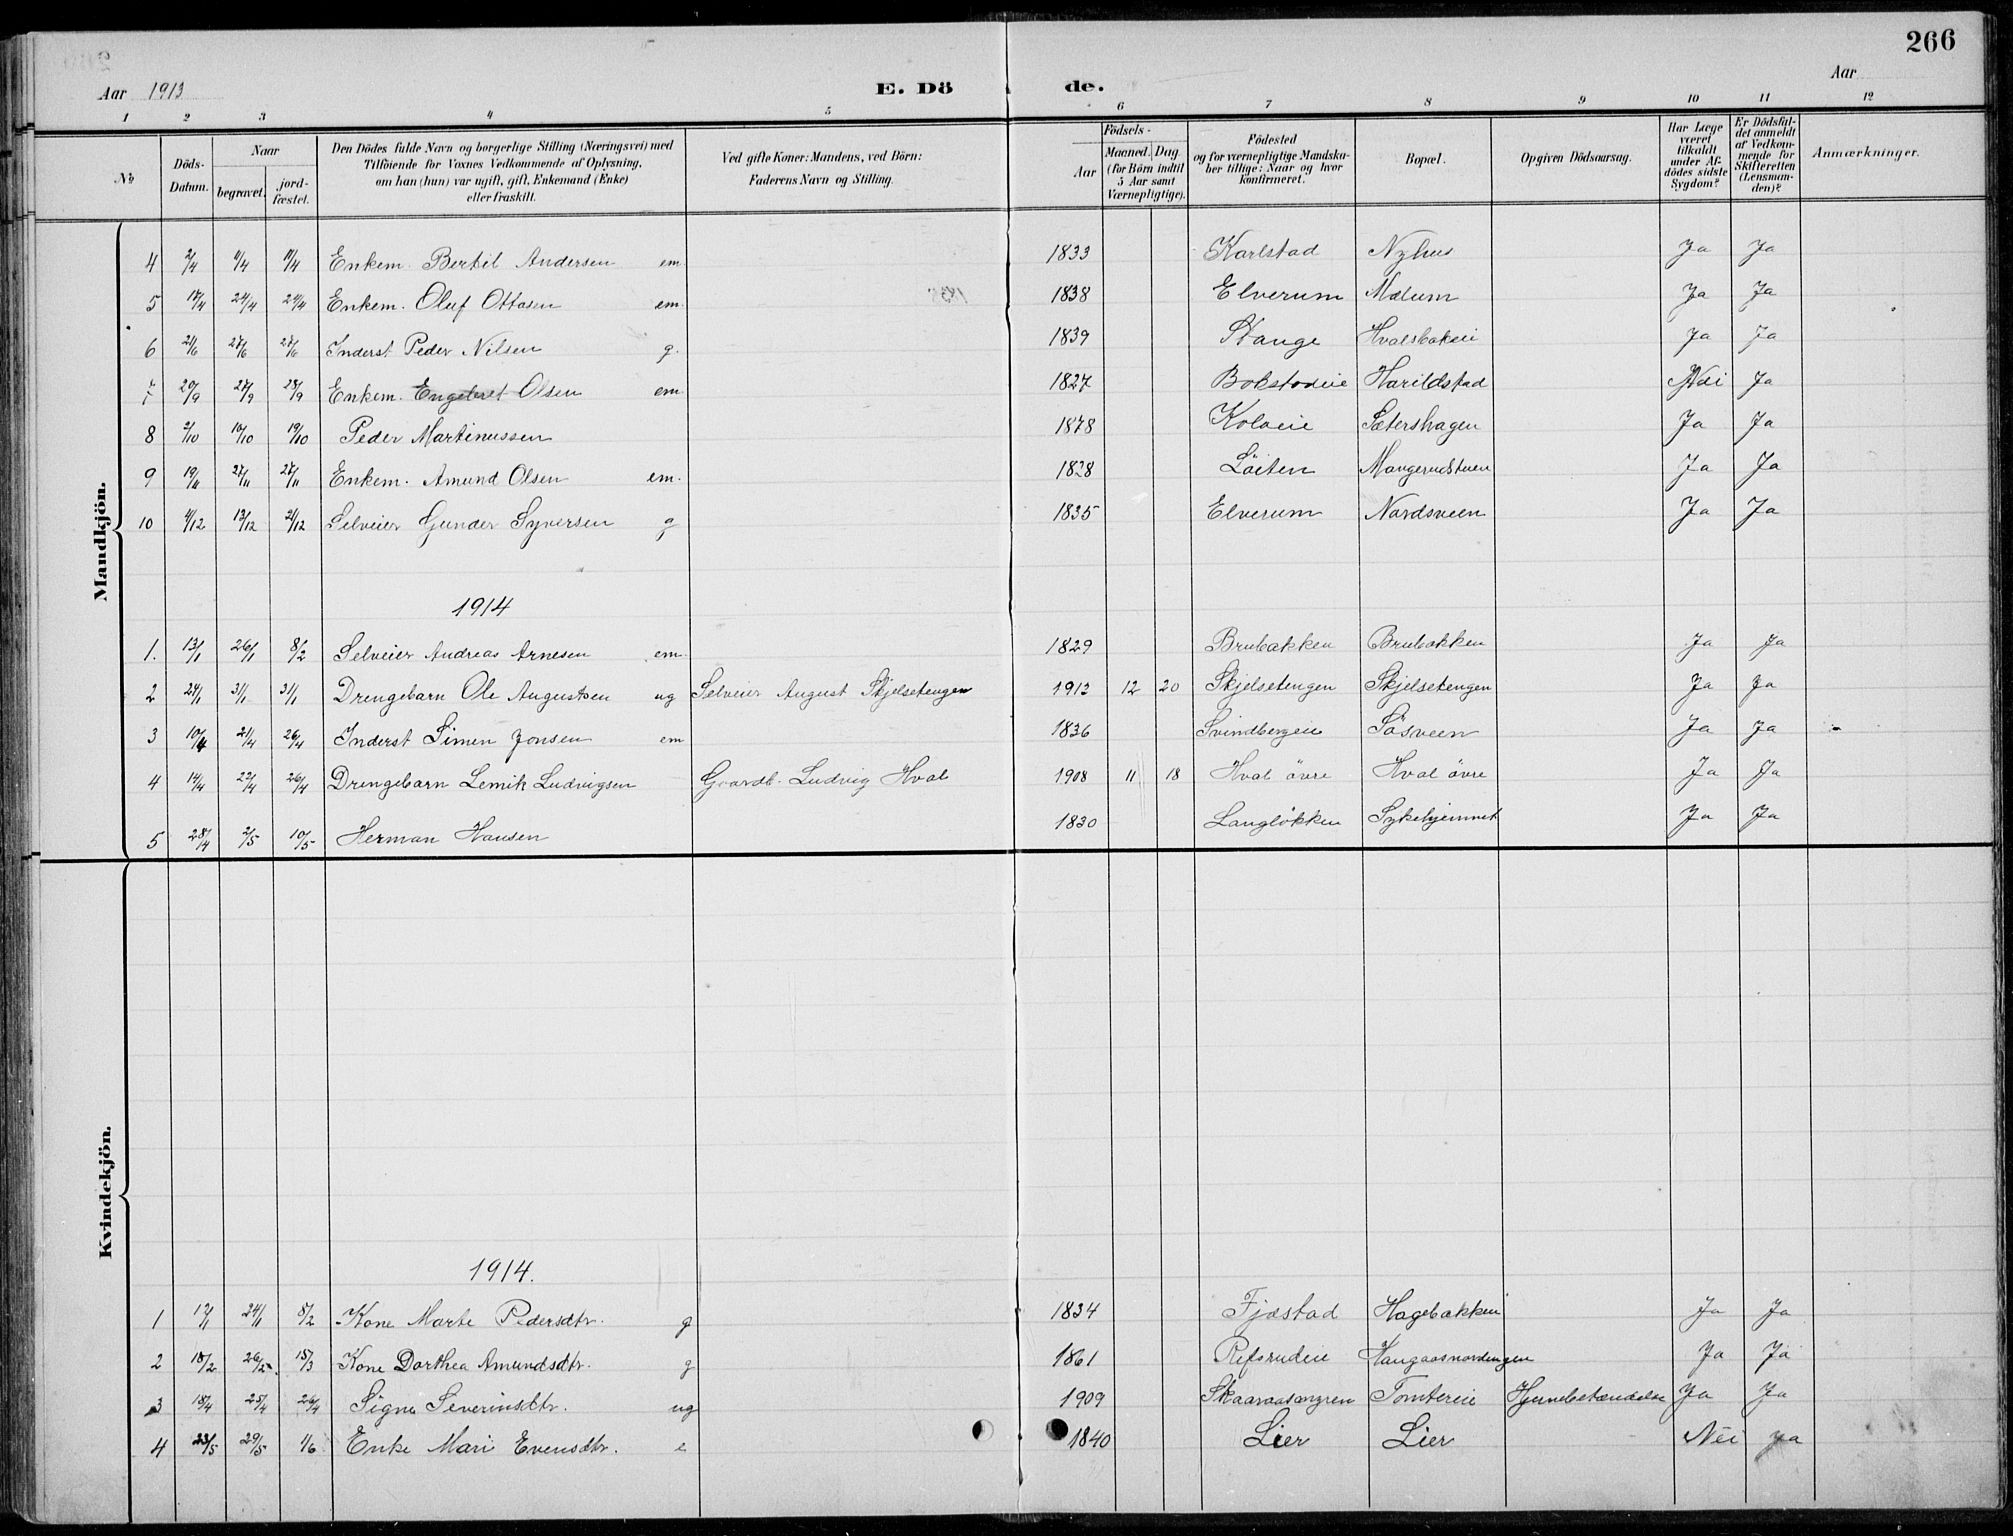 266
Aar 1913 E. Dö de. Aar
1 2 3 4 5 6 7 8 9 10 11 12
No. Döds-Datum. Naar begravet. jord-fæstet. Den Dödes fulde Navn og borgerlige Stilling (Næringsvei) med Tilföiende for Voxnes Vedkommende af Oplysning, om han (hun) var ugift, gift, Enkemand (Enke) eller fraskilt. Ved gifte Koner: Mandens, ved Börn: Faderens Navn og Stilling. Födsels- Aar Maaned. Dag (for Börn indtil 5 Aar samt Værnepligtige). Födested og for værnepligtige Mandskaber tillige: Naar og hvor konfirmeret. Bopæl. Opgiven Dödsaarsag. Har Læge været tilkaldt under Afdödes sidste Sygdom? Er Dödsfaldet anmeldt af Vedkommende for Skifteretten (Lensmanden)? Anmærkninger.
Mandkjön.
4 2/4 11/4 11/4 Enkem. Bertil Andersen em. 1833 Karlstad Nyhus Ja Ja
5 17/4 24/4 24/4 Enkem. Oluf Ottosen em. 1838 Elverum Mælum Ja Ja
6 21/6 27/6 27/6 Inderst Peder Nilsen g. 1839 Stange Hvalsbakeie Ja Ja
7 20/9 27/9 28/9 Enkem. Engebret Olsen em 1827 Bokstadeie Harildstad Nei Ja
8 2/10 10/10 19/10 Peder Martinussen 1878 Kolveie Sætershagen Ja Ja
9 19/11 27/11 27/11 Enkem. Amund Olsen em. 1828 Löiten Mangerudstuen Ja Ja
10 4/12 13/12 21/12 Selveier Gunder Syversen g 1835 Elverum Nordsveen Ja Ja
1914
1. 13/1 26/1 8/2 Selveier Andreas Arnesen em. 1829 Brubakken Brubakken Ja Ja
2 24/1 31/1 31/1 Drengebarn Ole Augustsen ug Selveier August Skjelsetengen 1913 12 20 Skjelsetengen Skjelsetengen Ja Ja
3 10/4 21/4 26/4 Inderst Simen Jonsen em 1836 Svindbergeie Sösveen Ja Ja
4 14/4 22/4 26/4 Drengebarn Lemik Ludvigsen Gaardb. Ludvig Hval 1908 11 18 Hval övre Hval övre Ja Ja
5 28/4 2/5 10/5 Herman Hansen 1830 Langlökken Sykehjemmet Ja Ja
Kvindekjön.
1914.
1 12/1 24/1 8/2 Kone Marte Pedersdtr. g 1834 Fjæstad Hagebakken Ja Ja
2 18/2 26/2 15/3 Kone Dorthea Amundsdtr. g 1861 Refsrudeie Haugaasnordengen Ja Ja
3 18/4 25/4 26/4 Signe Severinsdtr. ug 1909 Tomtereie Hjernebetændelse Ja Ja
4 23/5 29/5 1/6 Enke Mari Evensdtr. e 1840 Lier Lier Nei Ja